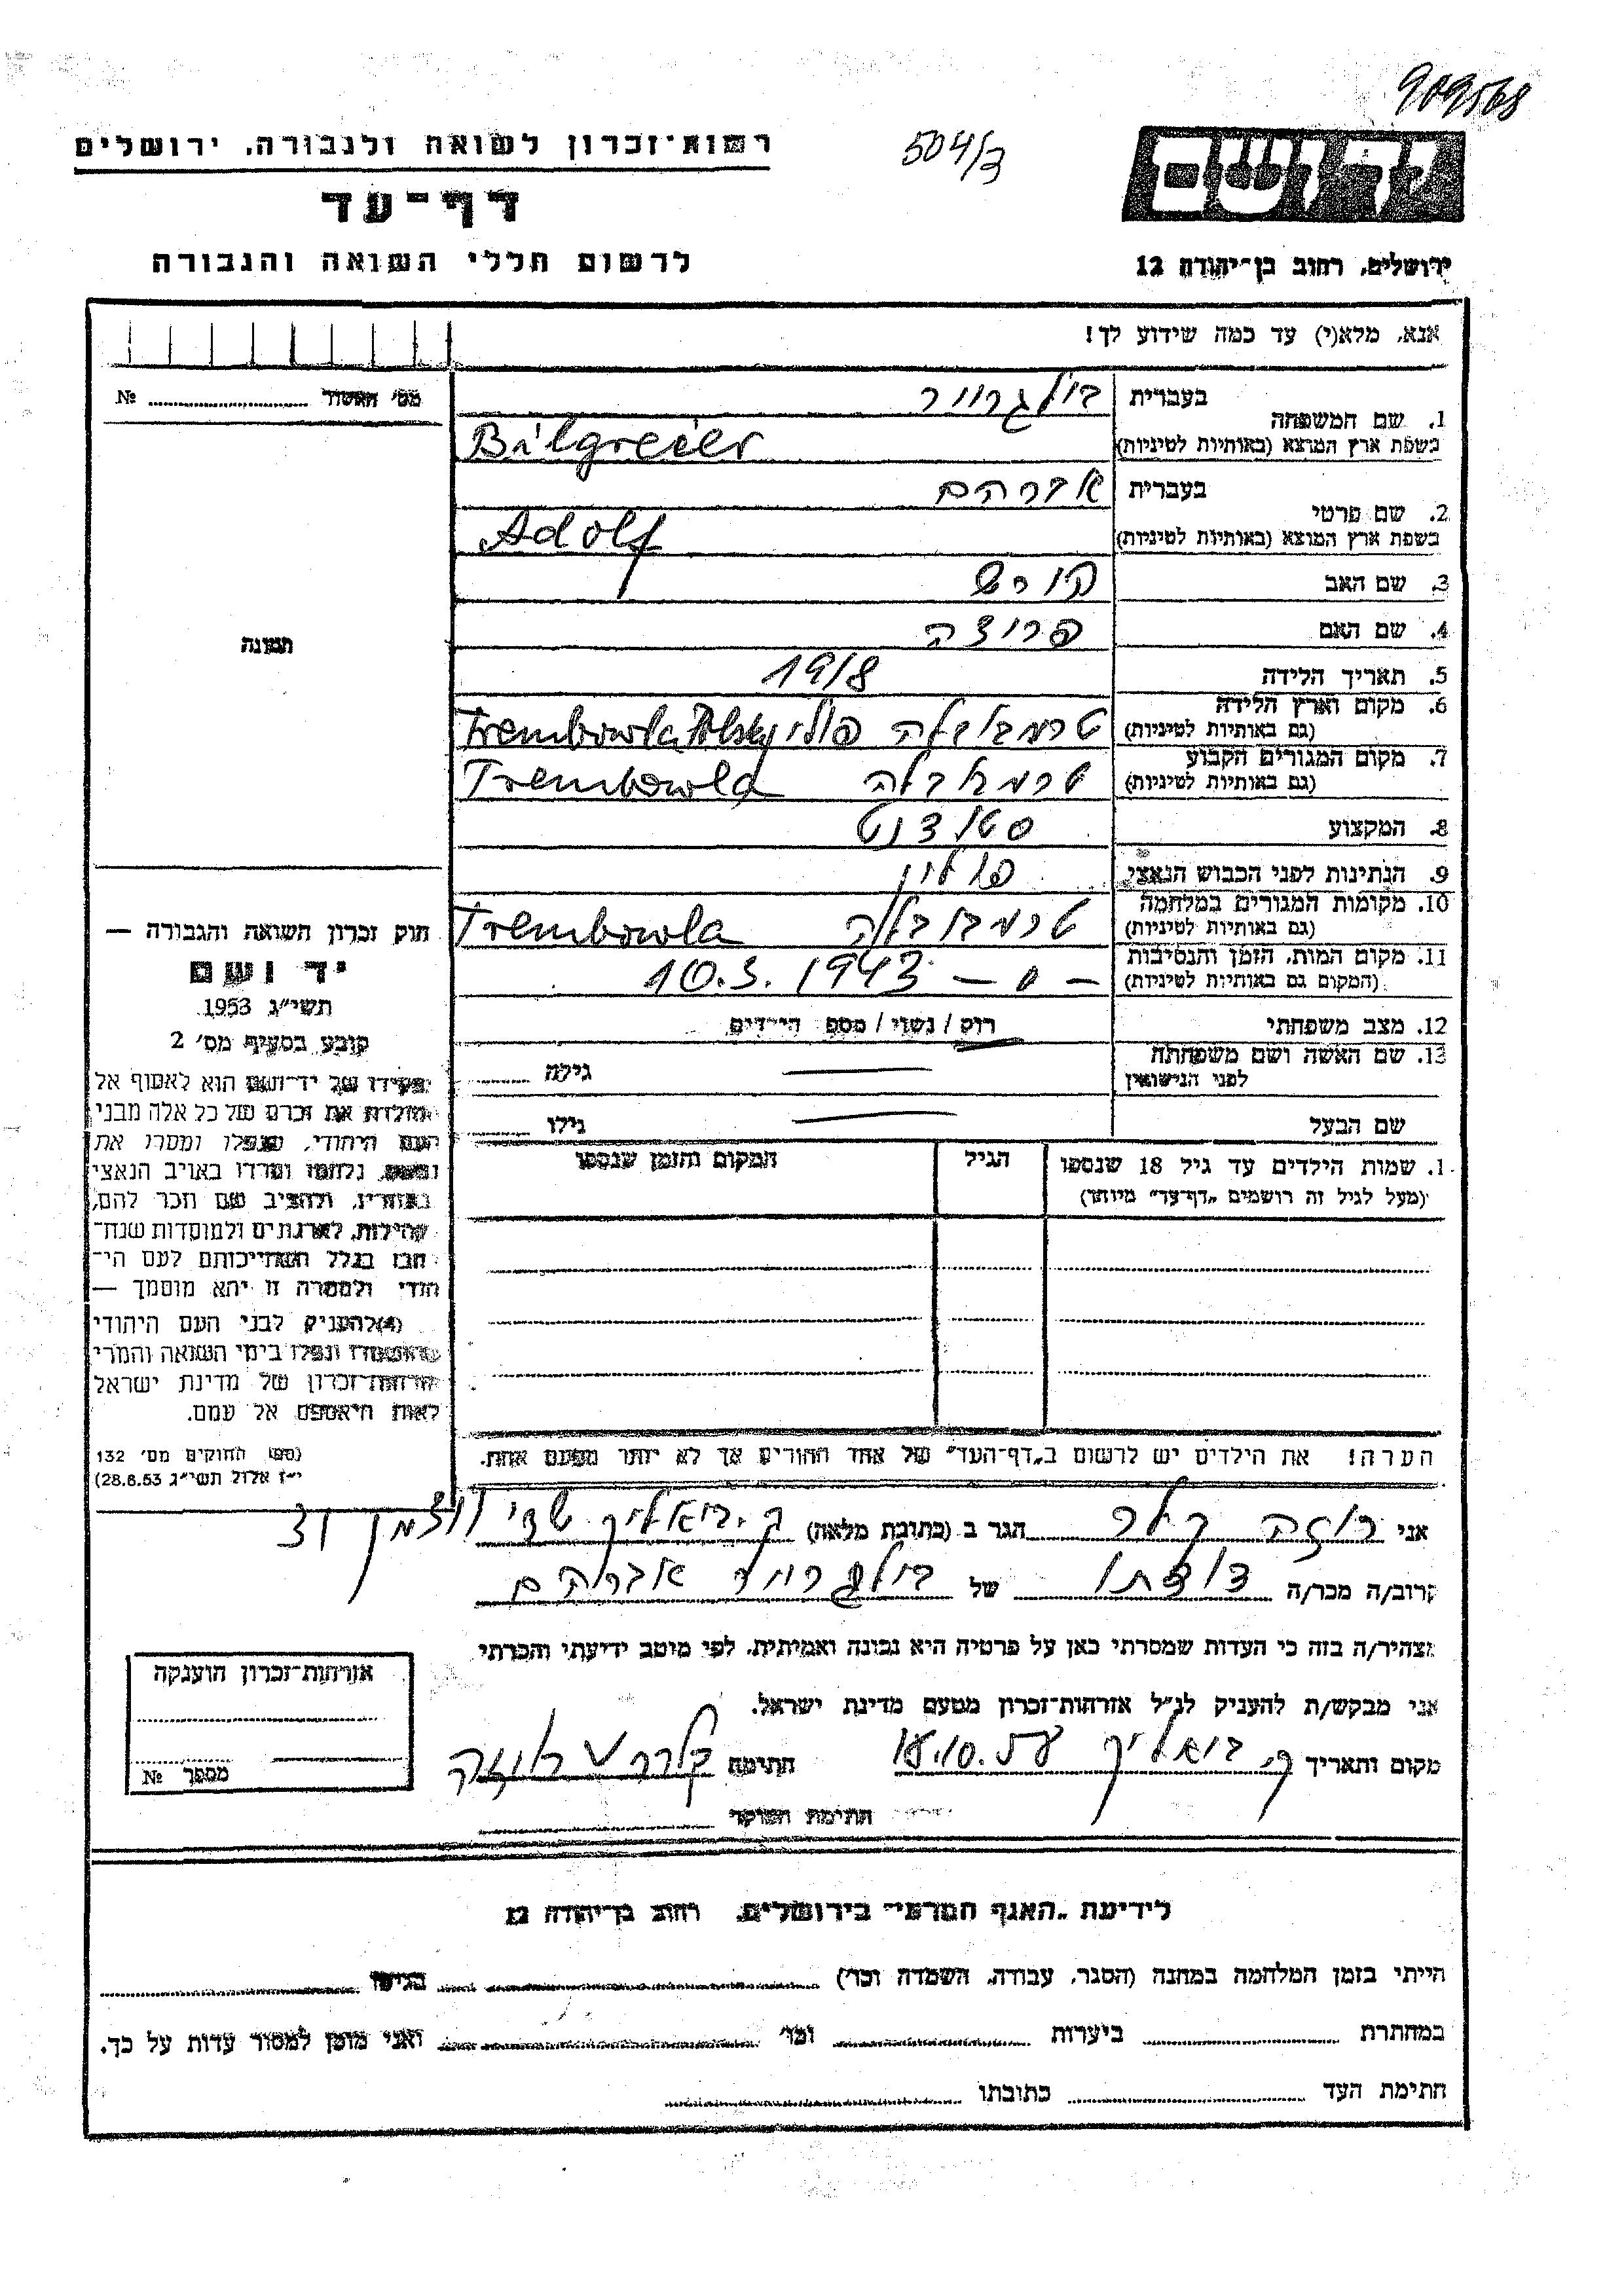 909568
504/3
רשות־זכרון לשואה ולגבורה, ירושלים
יד ושם
דף־עד
לרשום חללי השואה והגבורה
ירושלים, רחוב בן־יהודה 12
אנא, מלא(י) עד כמה שידוע לך!
מס׳ האשור № 
1. שם המשפחה
בעברית בולגרוייר
בשפת ארץ המוצא (באותיות לטיניות)
2. שם פרטי
בעברית אברהם
בשפת ארץ המוצא (באותיות לטיניות) Adolf
3. שם האב
4. שם האם
5. תאריך הלידה 1918
6. מקום וארץ הלידה
(גם באותיות לטיניות) Trembowla
7. מקום המגורים הקבוע
(גם באותיות לטיניות) טרמבובלה Trembowla
8. המקצוע סטודנט
9. הנתינות לפני הכבוש הנאצי פולין
10. מקומות המגורים במלחמה
(גם באותיות לטיניות) טרמבובלה Trembowla
11. מקום המות, הזמן והנסיבות
(המקום גם באותיות לטיניות) — 〃 — 10.3.1943
12. מצב משפחתי רווק / נשוי / מספר הילדים
13. שם האשה ושם משפחתה
לפני הנישואין גילה
שם הבעל גילו
1. שמות הילדים עד גיל 18 שנספו הגיל המקום והזמן שנספו
(מעל לגיל זה רושמים „דף־עד״ מיוחד)
הערה! את הילדים יש לרשום ב„דף־העד״ של אחד ההורים אך לא יותר מפעם אחת.
תמונה
חוק זכרון השואה והגבורה —
יד ושם
תשי״ג 1953
קובע בסעיף מס׳ 2
תפקידו של יד־ושם הוא לאסוף אל
מולדת את זכרם של כל אלה מבני
העם היהודי, שנפלו ומסרו את
נפשם, נלחמו ומרדו באויב הנאצי
ובעוזריו, ולהציב שם וזכר להם,
לקהילות, לארגונים ולמוסדות שנח־
רבו בגלל השתייכותם לעם הי־
הודי ולמטרה זו יהא מוסמך —
(4) להעניק לבני העם היהודי
שהושמדו ונפלו בימי השואה והמרי
אזרחות־זכרון של מדינת ישראל
לאות היאספם אל עמם.
(ספר החוקים מס׳ 132
י״ז אלול תשי״ג 28.8.53)
אני רוזה קלר הגר ב (כתובת מלאה) ק. ביאליק שדי וויצמן
קרוב/ה מכר/ה דודתו של בולגרוייר אברהם
מצהיר/ה בזה כי העדות שמסרתי כאן על פרטיה היא נכונה ואמיתית, לפי מיטב ידיעתי והכרתי
אני מבקש/ת להעניק לנ״ל אזרחות־זכרון מטעם מדינת ישראל.
מקום ותאריך ק. ביאליק חתימה קלר רוזה
חתימת הפוקד
אזרחות־זכרון הוענקה
מספר №
לידיעת „האגף המדעי״ בירושלים, רחוב בן־יהודה 12
הייתי בזמן המלחמה במחנה (הסגר, עבודה, השמדה וכו׳) בגיטו
במחתרת ביערות וכו׳ ואני מוכן למסור עדות על כך.
חתימת העד כתובתו